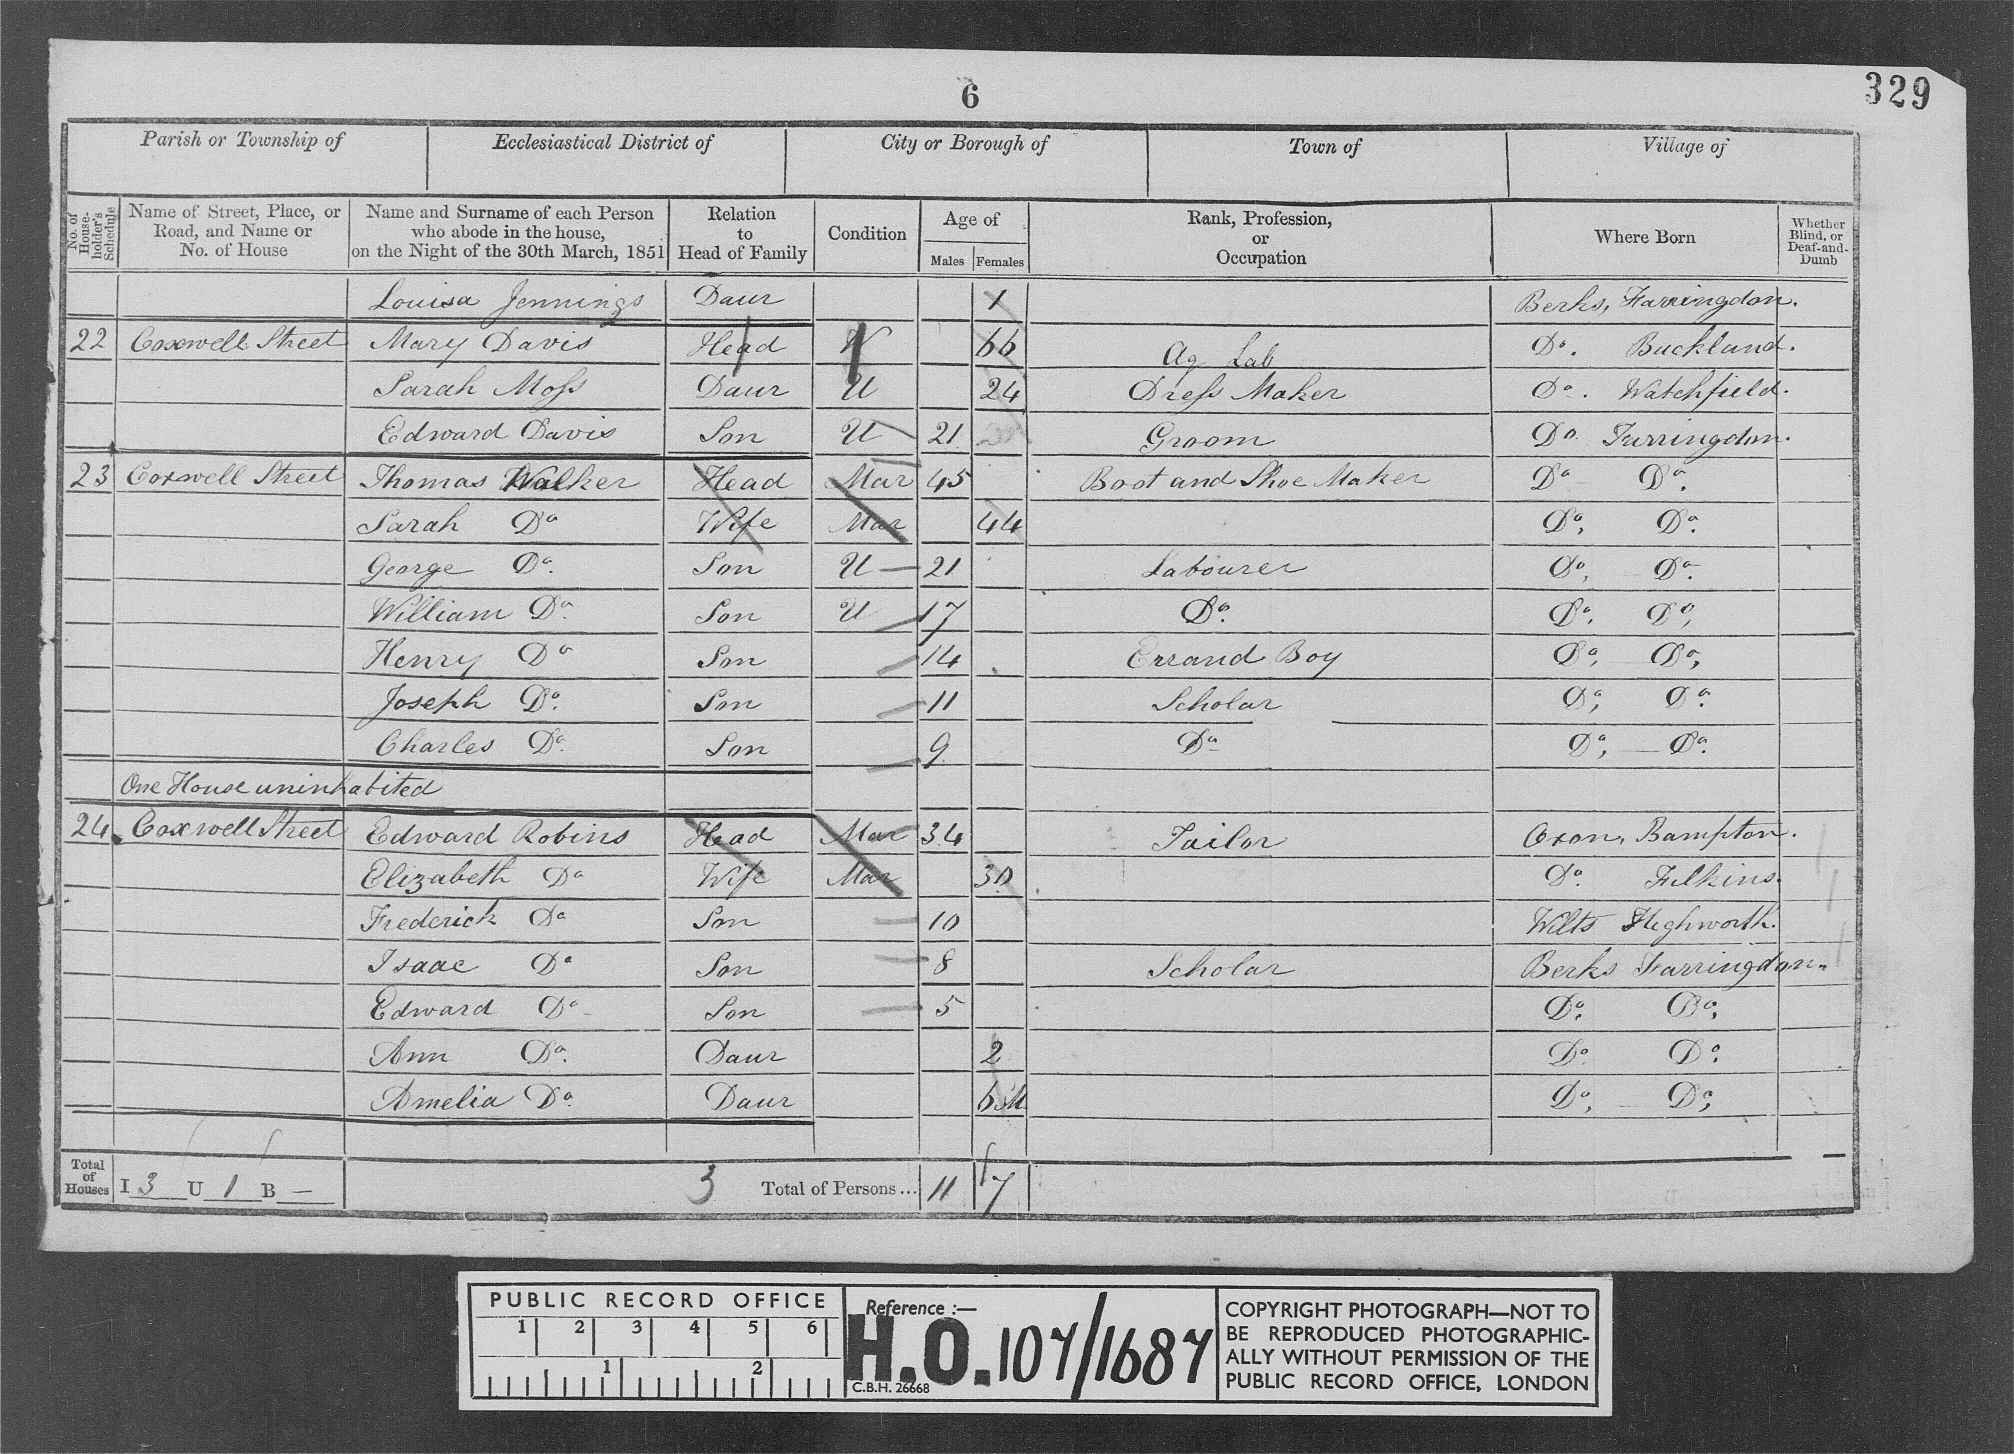 6
329
Parish or Township of Ecclesiastical District of City or Borough of Town of Village of
No. of House-holder's Schedule Name of Street, Place, or Road, and Name or No. of House Name and Surname of each Person who abode in the house, on the Night of the 30th March, 1851 Relation to Head of Family Condition Age of Males Females Rank, Profession, or Occupation Where Born Whether Blind, or Deaf-and-Dumb
Louisa Jennings Daur 1 Berks, Farringdon.
22 Coxwell Street Mary Davis Head W 66 Ag Lab Do. Buckland.
Sarah Moss Daur U 24 Dress Maker Do. Watchfield.
Edward Davis Son U 21 Groom Do Farringdon.
23 Coxwell Street Thomas Walker Head Mar 45 Boot and Shoe Maker Do Do.
Sarah Do Wife Mar 44 Do, Do.
George Do. Son U 21 Labourer Do, Do.
William Do. Son U 17 Do. Do, Do,
Henry Do Son 14 Errand Boy Do, Do,
Joseph Do. Son 11 Scholar Do, Do.
Charles Do. Son 9 Do Do, Do.
One House uninhabited
24 Coxwell Street Edward Robins Head Mar 34 Tailor Oxon, Bampton.
Elizabeth Do Wife Mar 30 Do. Filkins.
Frederick Do Son 10 Wilts Highworth.
Isaac Do Son 8 Scholar Berks Farringdon.
Edward Do Son 5 Do, Do,
Ann Do. Daur 2 Do. Do.
Amelia Do. Daur 6M Do, Do,
Total of Houses I 3 U 1 B — 3 Total of Persons... 11 7
PUBLIC RECORD OFFICE
1 2 3 4 5 6
1 2
Reference :—
H.O. 107/1687
C.B.H. 26668
COPYRIGHT PHOTOGRAPH—NOT TO
BE REPRODUCED PHOTOGRAPHIC-
ALLY WITHOUT PERMISSION OF THE
PUBLIC RECORD OFFICE, LONDON